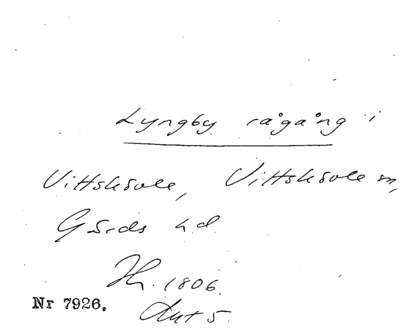 Lyngby rågång i
Vittskövle, Vittskövle sn,
Gärds hd
Hr. 1806.
Avt 5.
Nr 7926.